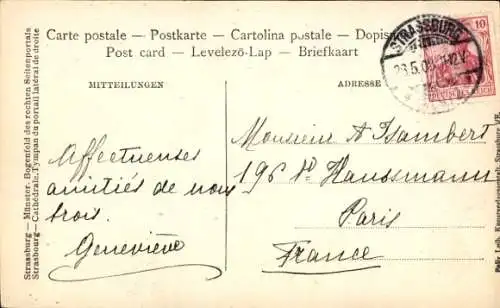 Carte postale — Postkarte — Cartolina postale — Dopis
Post card — Levelező-Lap — Briefkaart
MITTEILUNGEN
ADRESSE
STRASSBURG
10
DEUTSCHES REICH
Affectueuses
amitiés de nous
trois.
Geneviève
Monsieur A Isambert
196 Bd Haussmann
Paris
France
Strassburg — Münster. Bogenfeld des rechten Seitenportals
Strasbourg — Cathédrale. Tympan du portail latéral de droite